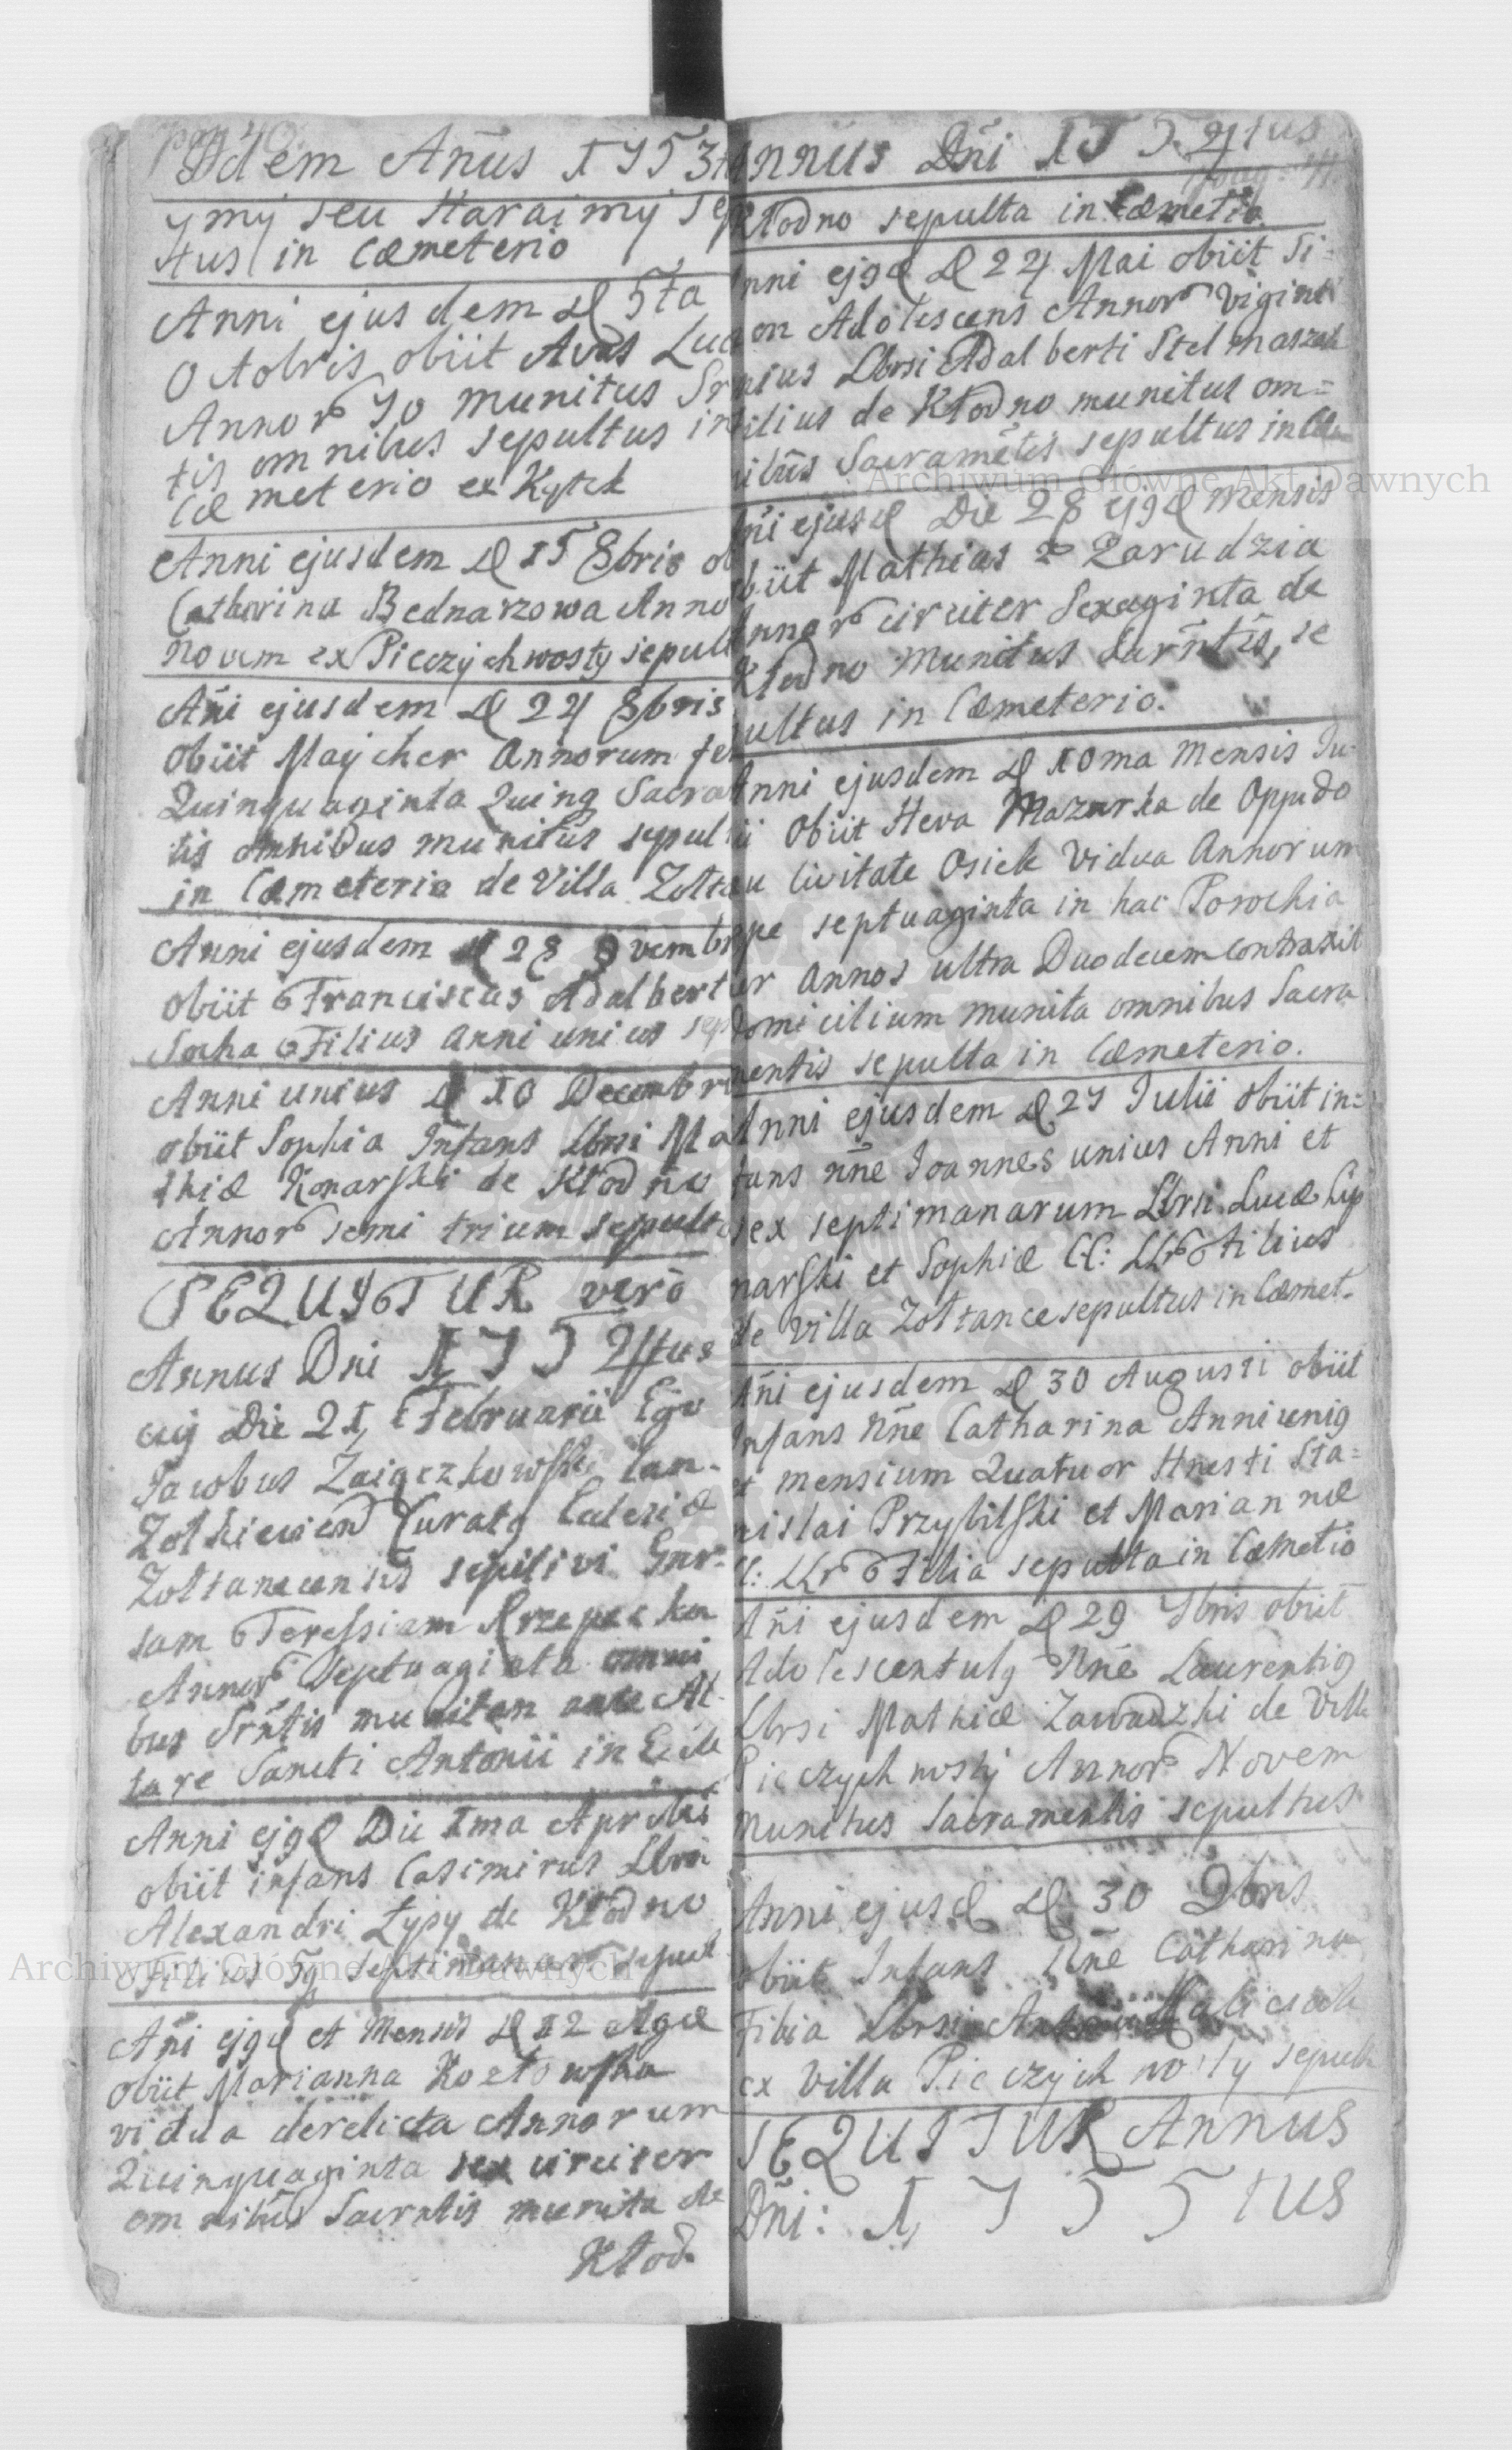 pag 40.
Idem Añus 1753t
ymÿ seu Haraimÿ sep
tus in Cæmeterio
Anni ejusdem D 5ta
Octobris obiit Avus Luc
Annor 70 munitus Sr
tis omnibus sepultus in
Cæmeterio ex Kytek
Anni ejusdem D 15 8bris ob
Catharina Bednarzowa Anno
novem ex Pieczychwosty sepult
Añi ejusdem D 24 8bris
obiit Maÿcher Annorum fe
Quinquaginta Quinq Sacra
tis omnibus munitus sepul
in Cæmeterio de Villa Zołta
Anni ejusdem D 28 9vembr
obiit Franciscus Adalbert
Socha Filius anni unius sep
Anni unius D 10 Decembr
obiit Sophia Infans Lbrsi Ma
thiæ Konarski de Kłodno
Annor semi trium sepult
SEQUITUR vero
Annus Dni 1754tus
cuj Die 21 Februarii Ego
Jacobus Zaigczkowski Can.
Zołkievien Curatq Ecclesiæ
Zołtanecensis sepelivi Gnr-
sam Teressiam Rzepecka
Annor septuaginta omni
bus Srntis munitam ante Al-
tare Sancti Antonii in Eccle
Anni ejqd Die 1ma Aprilis
obiit infans Casimirus Lbrsi
Alexandri Łypy de Kłodno
Filius 5q septimanar sepul
Añi ejqd et Mensis D 12 ejqd
obiit Marianna Kozłowska
vidua derelicta Annorum
Quinquaginta sex circiter
omnibus Sacrntis munita de
Kłod.
Annus Dñi 1754tus
pag: 41.
Kłodno sepulta in Cæmetio
nni ejqd D 24 Mai obiit Si=
on Adolescens Annor viginti
nius Lbrsi Adalberti Stelmaszek
ilius de Kłodno munitus om=
ibus Sacrametis sepultus in Cæm
ñi ejusd Die 28 ejqd mensis
biit Mathias Zarudzia
nnor circiter Sexaginta de
Kłodno munitus Sacrñtis, se
ultus in Cæmeterio.
Anni ejusdem D 10ma mensis Ju-
ii obiit Heva Mazurka de oppido
u Civitate Osiek Vidua Annorum
pe septuaginta in hac Parochia
er Annos ultra Duodecem contraxit
omicilium munita omnibus Sacra
mentis sepulta in Cæmeterio.
Anni ejusdem D 27 Julii obiit in=
fans nñe Joannes unius Anni et
sex septimanarum Lbrsi Lucæ Lip
narski et Sophiæ CC: LLr Filius
de villa Zołtance sepultus in Cæmet.
Añi ejusdem D 30 Augusti obiit
Infans Nñe Catharina Anni uniq
et mensium Quatuor Hnesti Sta=
nislai Przybilski et Mariannæ
C: LLr Filia sepulta in Cæmetio
Añi ejusdem D 29 7bris obiit
Adolescentulq Nñe Laurentiq
Lbrsi Mathiæ Zawadzki de Villa
Pieczychwosty Annor Novem
munitus Sacramentis sepultus
Anni ejusd D 30 9bris
obiit Infans Nñe Catharina
Filia Lbrsi
ex Villa Pieczychwosty sepult
SEQUITUR Annus
Dñi: 1755tus
Archiwum Główne Akt Dawnych
Archiwum Główne Akt Dawnych